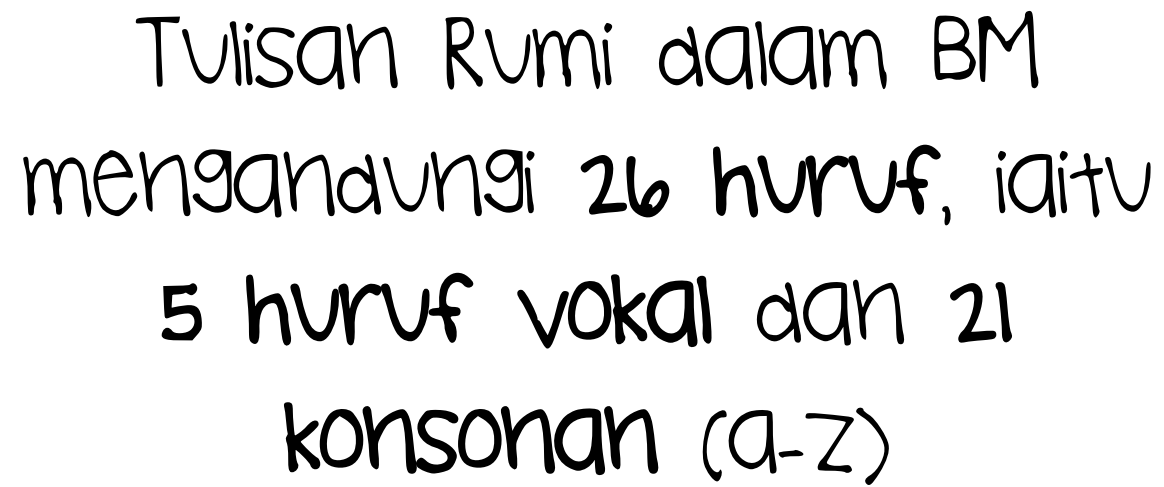 Tulisan Rumi dalam BM
mengandungi 26 huruf, iaitu
5 huruf vokal dan 21
konsonan (a-z)